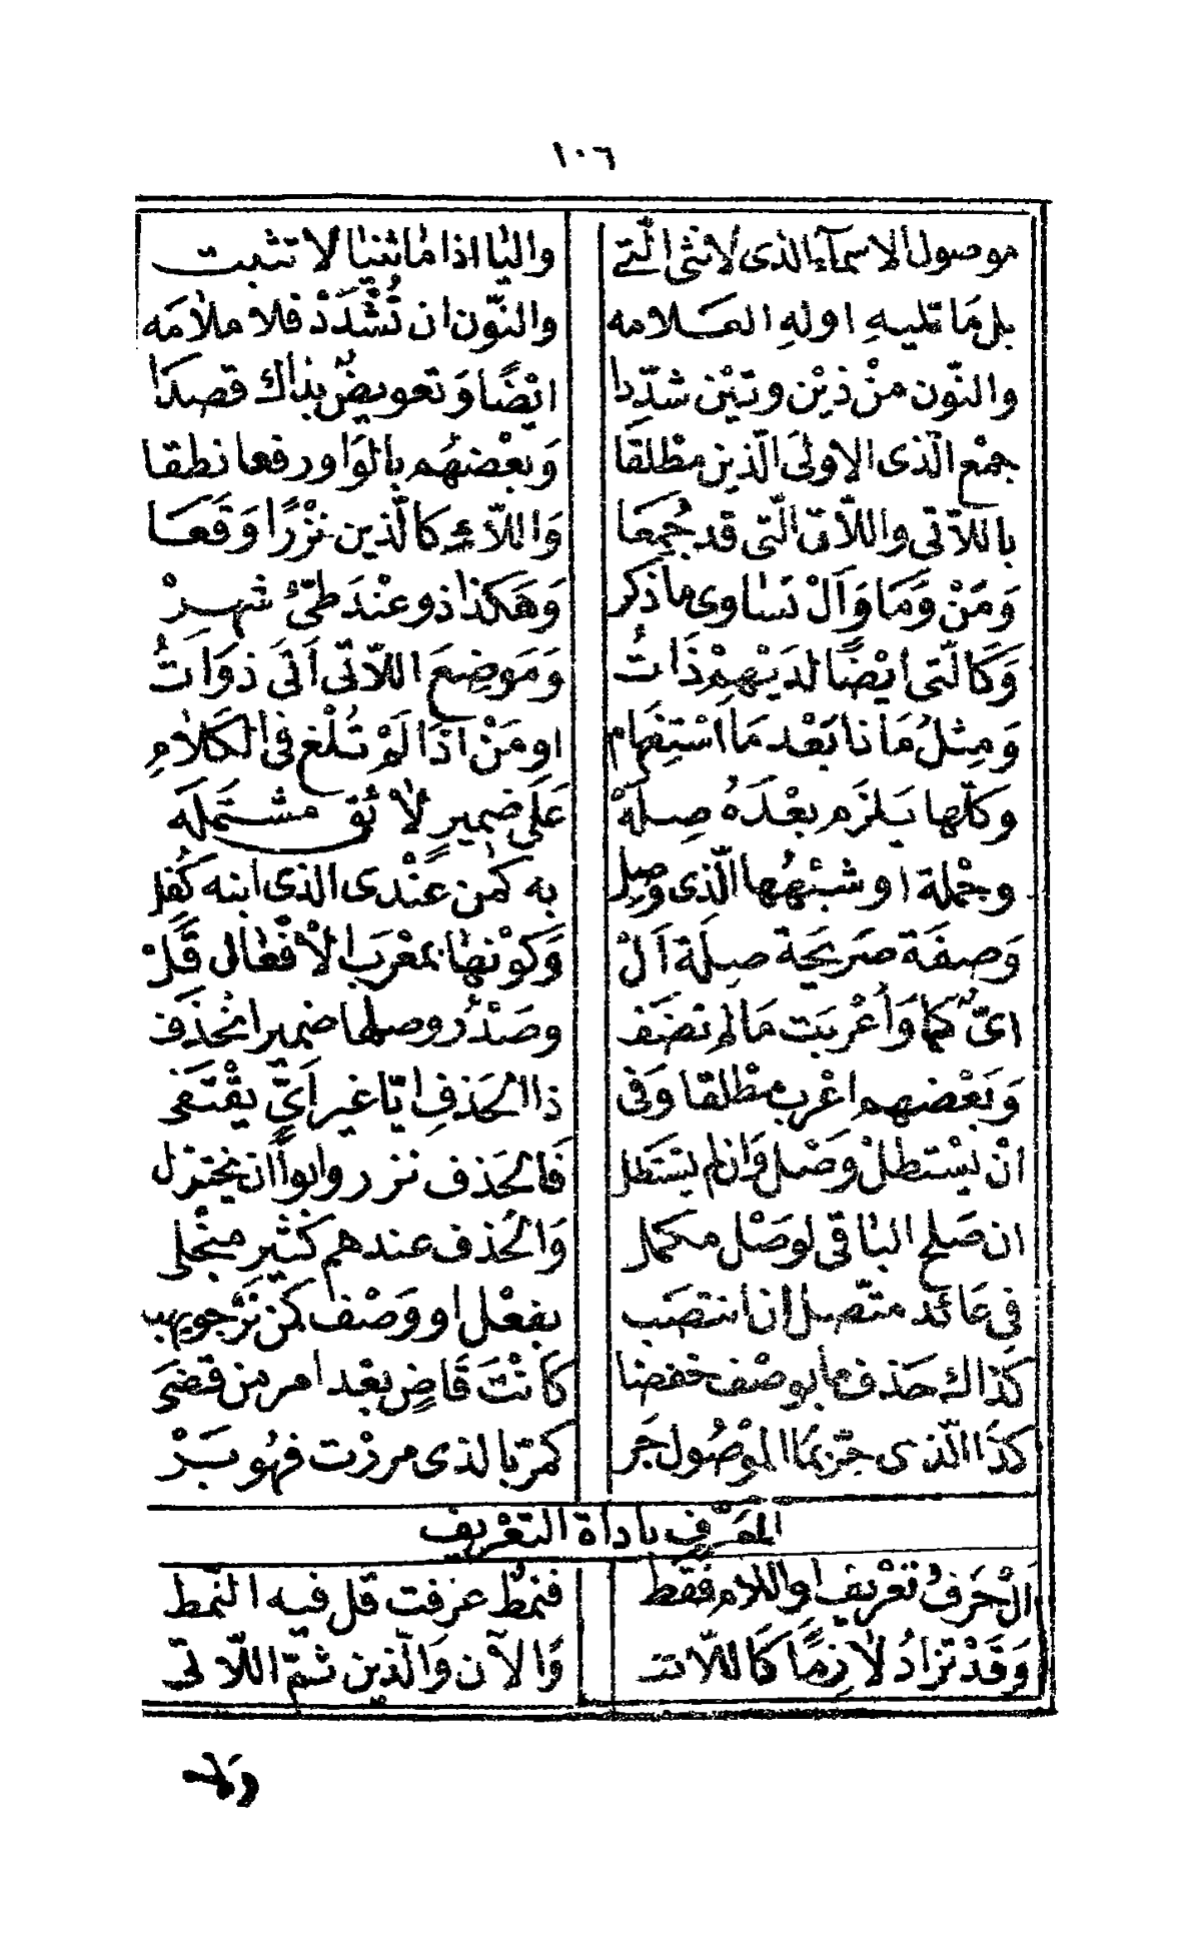 ١٠٦
موصول الاسمآء الذى الانثى الّتى واليا اذا ما ثنيا لا تثبت
بل مَا تليهِ اولهِ العَلامه والنّون ان تُشْدَدْ فلا ملامَه
والنّون منْ ذيْن وتيْن شدّدا ايْضًا وَتعويضٌ بذاك قصدَا
جمْع الّذى الاولىَ الّذين مطْلقَا وَبعْضهُم بالوَاو رفعا نطقا
باللّاتى واللّاء الّتى قد جُمِعَا وَاللّاءِ كالّذين نزْرًا وَقَعَا
وَمَنْ وَمَا وَاَلْ تسَاوى ما ذكر وَهَكذا ذو عنْدَ طيّئ شهرْ
وَكَالّتى ايْضًا لدَيْهمْ ذَاتُ وَمَوضِعَ اللّاتى اَتَى ذوَاتُ
وَمِثلُ مَا ذا بَعْد مَا اسْتِفهَام اومَنْ اذَا لَمْ تُلْغ فى الكَلامِ
وكلّها يَلزَم بعْدَهُ صِلَهْ عَلَى ضميرٍ لائق مشتَملَه
وجْملة او شبْهُها الّذى وُصِل به كمَن عنْدى الذى ابنه كُفل
وَصِفَة صَريحَة صِلَة اَلْ وَكوْنها بمعْرَب الْافْعَال قَلْ
اىٌّ كمَا وَاُعْربَت مَا لم تضَف وصَدْرُ وصلها ضمير انحَذف
وَبَعْضهم اعْرب مطْلقا وَفى ذا الحَذفِ ايّا غير اَىٍّ يقْتَفى
انْ يسْتطلْ وَصْل وَان لم يسْتَطل فَالحَذف نزر وابوا ان يختزل
ان صَلح البَاقى لوَصْل مكمل وَالحَذف عندهم كثير منْجَلى
فى عَائد متّصل ان انتصَب بفعْل او وَصْف كمَن نَرْجو يهب
كذاك حَذف ما بوصْف خفضا كانْتَ قَاضٍ بعْد امر من قضَى
كذَا الّذى جرّ بمَا الموْصُول جَر كمرّ بالذى مررْت فهُو بَرْ
المعَرّف باداة التعْريف
اَلْ حَرفُ تعْريف او اللام فَقَط فنمطٌ عرفت قل فيه النّمط
وَقَدْ تزَادُ لازِمًا كَاللّات وَالآن وَالّذين ثمّ اللّاتى